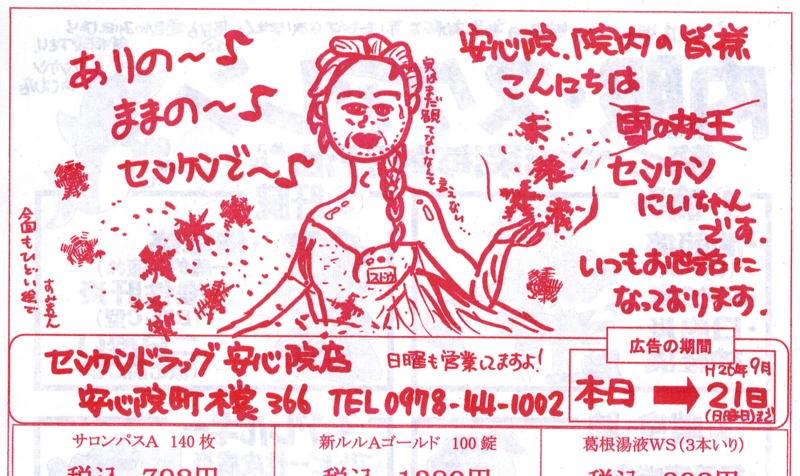 ありの〜♪
ままの〜♪
センケンで〜♪
実はまだ観てないなんて
言えない…
安心院、院内の皆様
こんにちは
雪の女王
センケン
にいちゃん
です.
いつもお世話に
なっております.
今回もひどい絵で
すみません
センケンドラッグ 安心院店
日曜も営業してますよ!
安心院町木裳 366 TEL 0978-44-1002
広告の期間
H26年9月
本日 ➡ 21日
(日曜日)まで
サロンパスA 140枚
新ルルAゴールド 100錠
葛根湯液WS(3本いり)
税込
税込